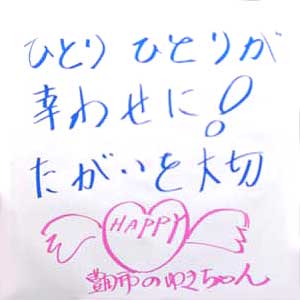 ひとり ひとりが
幸わせに!
たがいを大切
HAPPY
のゆきちゃん